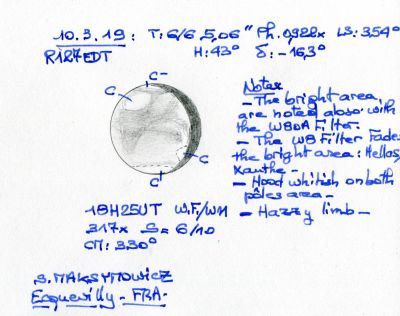 10.3.19 : T: 6/6 5,06" Ph. 0,922x LS: 354°
R127EDT H: 43° δ: -16,3°
C C-
C
C
Notes
- The bright area,
are noted also with
the W80A Filter.
- The W8 Filter Fades
the bright area: Hellas,
Xanthe -
- Hood whitish on both
pôles area -
- Hazzy limb -
18H25UT W.F/W11
317x S = 6/10
CM: 330°
S. MAKSYMOWICZ
Ecquevilly - FRA -